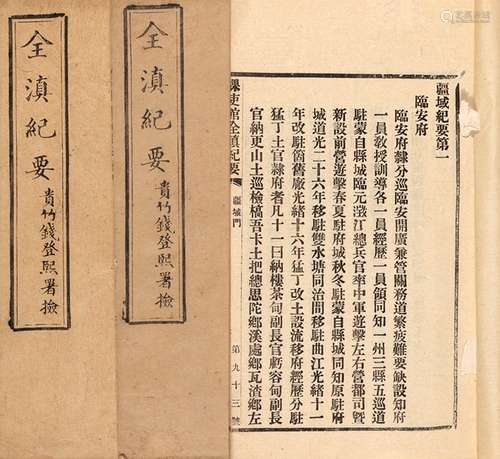 疆域紀要第一
臨安府
臨安府隸分巡臨安開廣兼管關務道繁疲難要缺設知府
一員教授訓導各一員經歷一員領同知一州三縣五巡道
駐蒙自縣城臨元澂江總兵官率中軍遊擊左右營都司暨
新設前營遊擊春夏駐府城秋冬駐蒙自縣城同知原駐府
城道光二十六年移駐雙水塘同治間移駐曲江光緒十一
年改駐箇舊廠光緒十六年猛丁改土設流移府經歷分駐
猛丁土官隸府者凡十一曰納樓茶甸副長官虧容甸副長
官納更山土巡檢槁吾卡土把總思陀鄉溪處鄉瓦渣鄉左
課吏館全滇紀要 疆域門 第九十三號
全滇紀要 貴竹錢登熙署撿
全滇紀要 貴竹錢登熙署撿